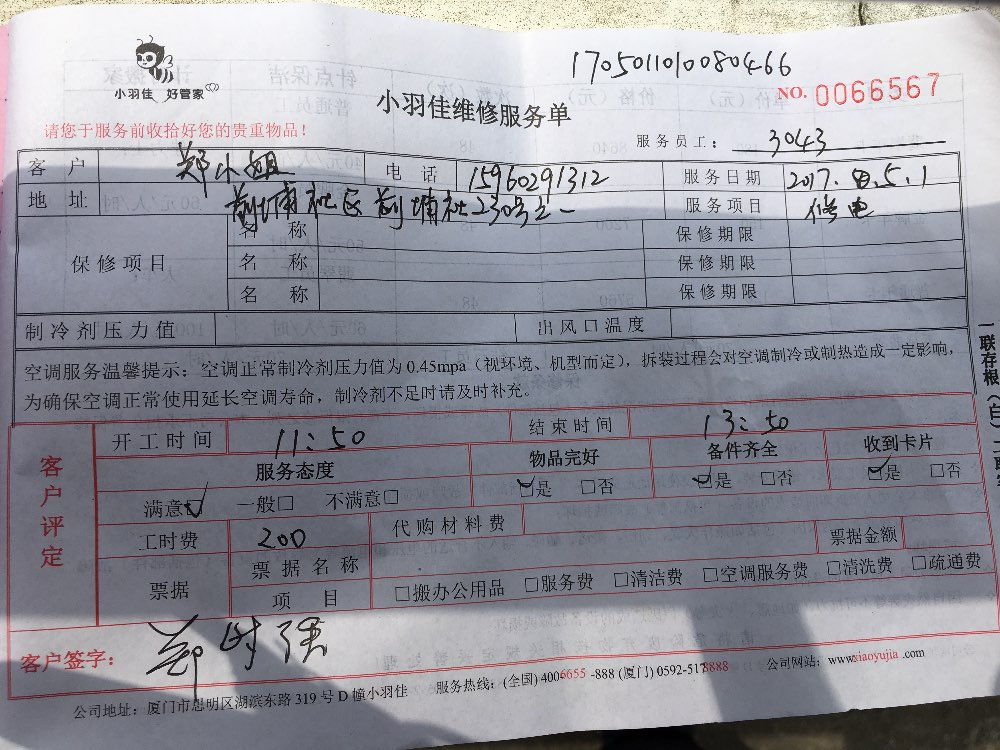 1705011010080466
小羽佳 好管家
小羽佳维修服务单
NO. 0066567
请您于服务前收拾好您的贵重物品！
服务员工： 3043
客 户 郑小姐 电 话 15960291312 服务日期 2017.5.1
地 址 前埔社区前埔社230号之一 服务项目 修电
保修项目
名 称 保修期限
名 称 保修期限
名 称 保修期限
制冷剂压力值 出风口温度
空调服务温馨提示：空调正常制冷剂压力值为 0.45mpa（视环境、机型而定），拆装过程会对空调制冷或制热造成一定影响，
为确保空调正常使用延长空调寿命，制冷剂不足时请及时补充。
一联存根（白）
客户评定
开工时间 11:50 结束时间 13:50
服务态度 物品完好 备件齐全 收到卡片
满意☑ 一般□ 不满意□ ☑是 □否 ☑是 □否 ☑是 □否
工时费 200 代购材料费
票据 票据名称 票据金额
项 目 □搬办公用品 □服务费 □清洁费 □空调服务费 □清洗费 □疏通费
客户签字：
公司地址：厦门市思明区湖滨东路 319 号 D 幢小羽佳 服务热线：(全国) 4006655 -888 (厦门) 0592-5178888 公司网站：www.xiaoyujia .com